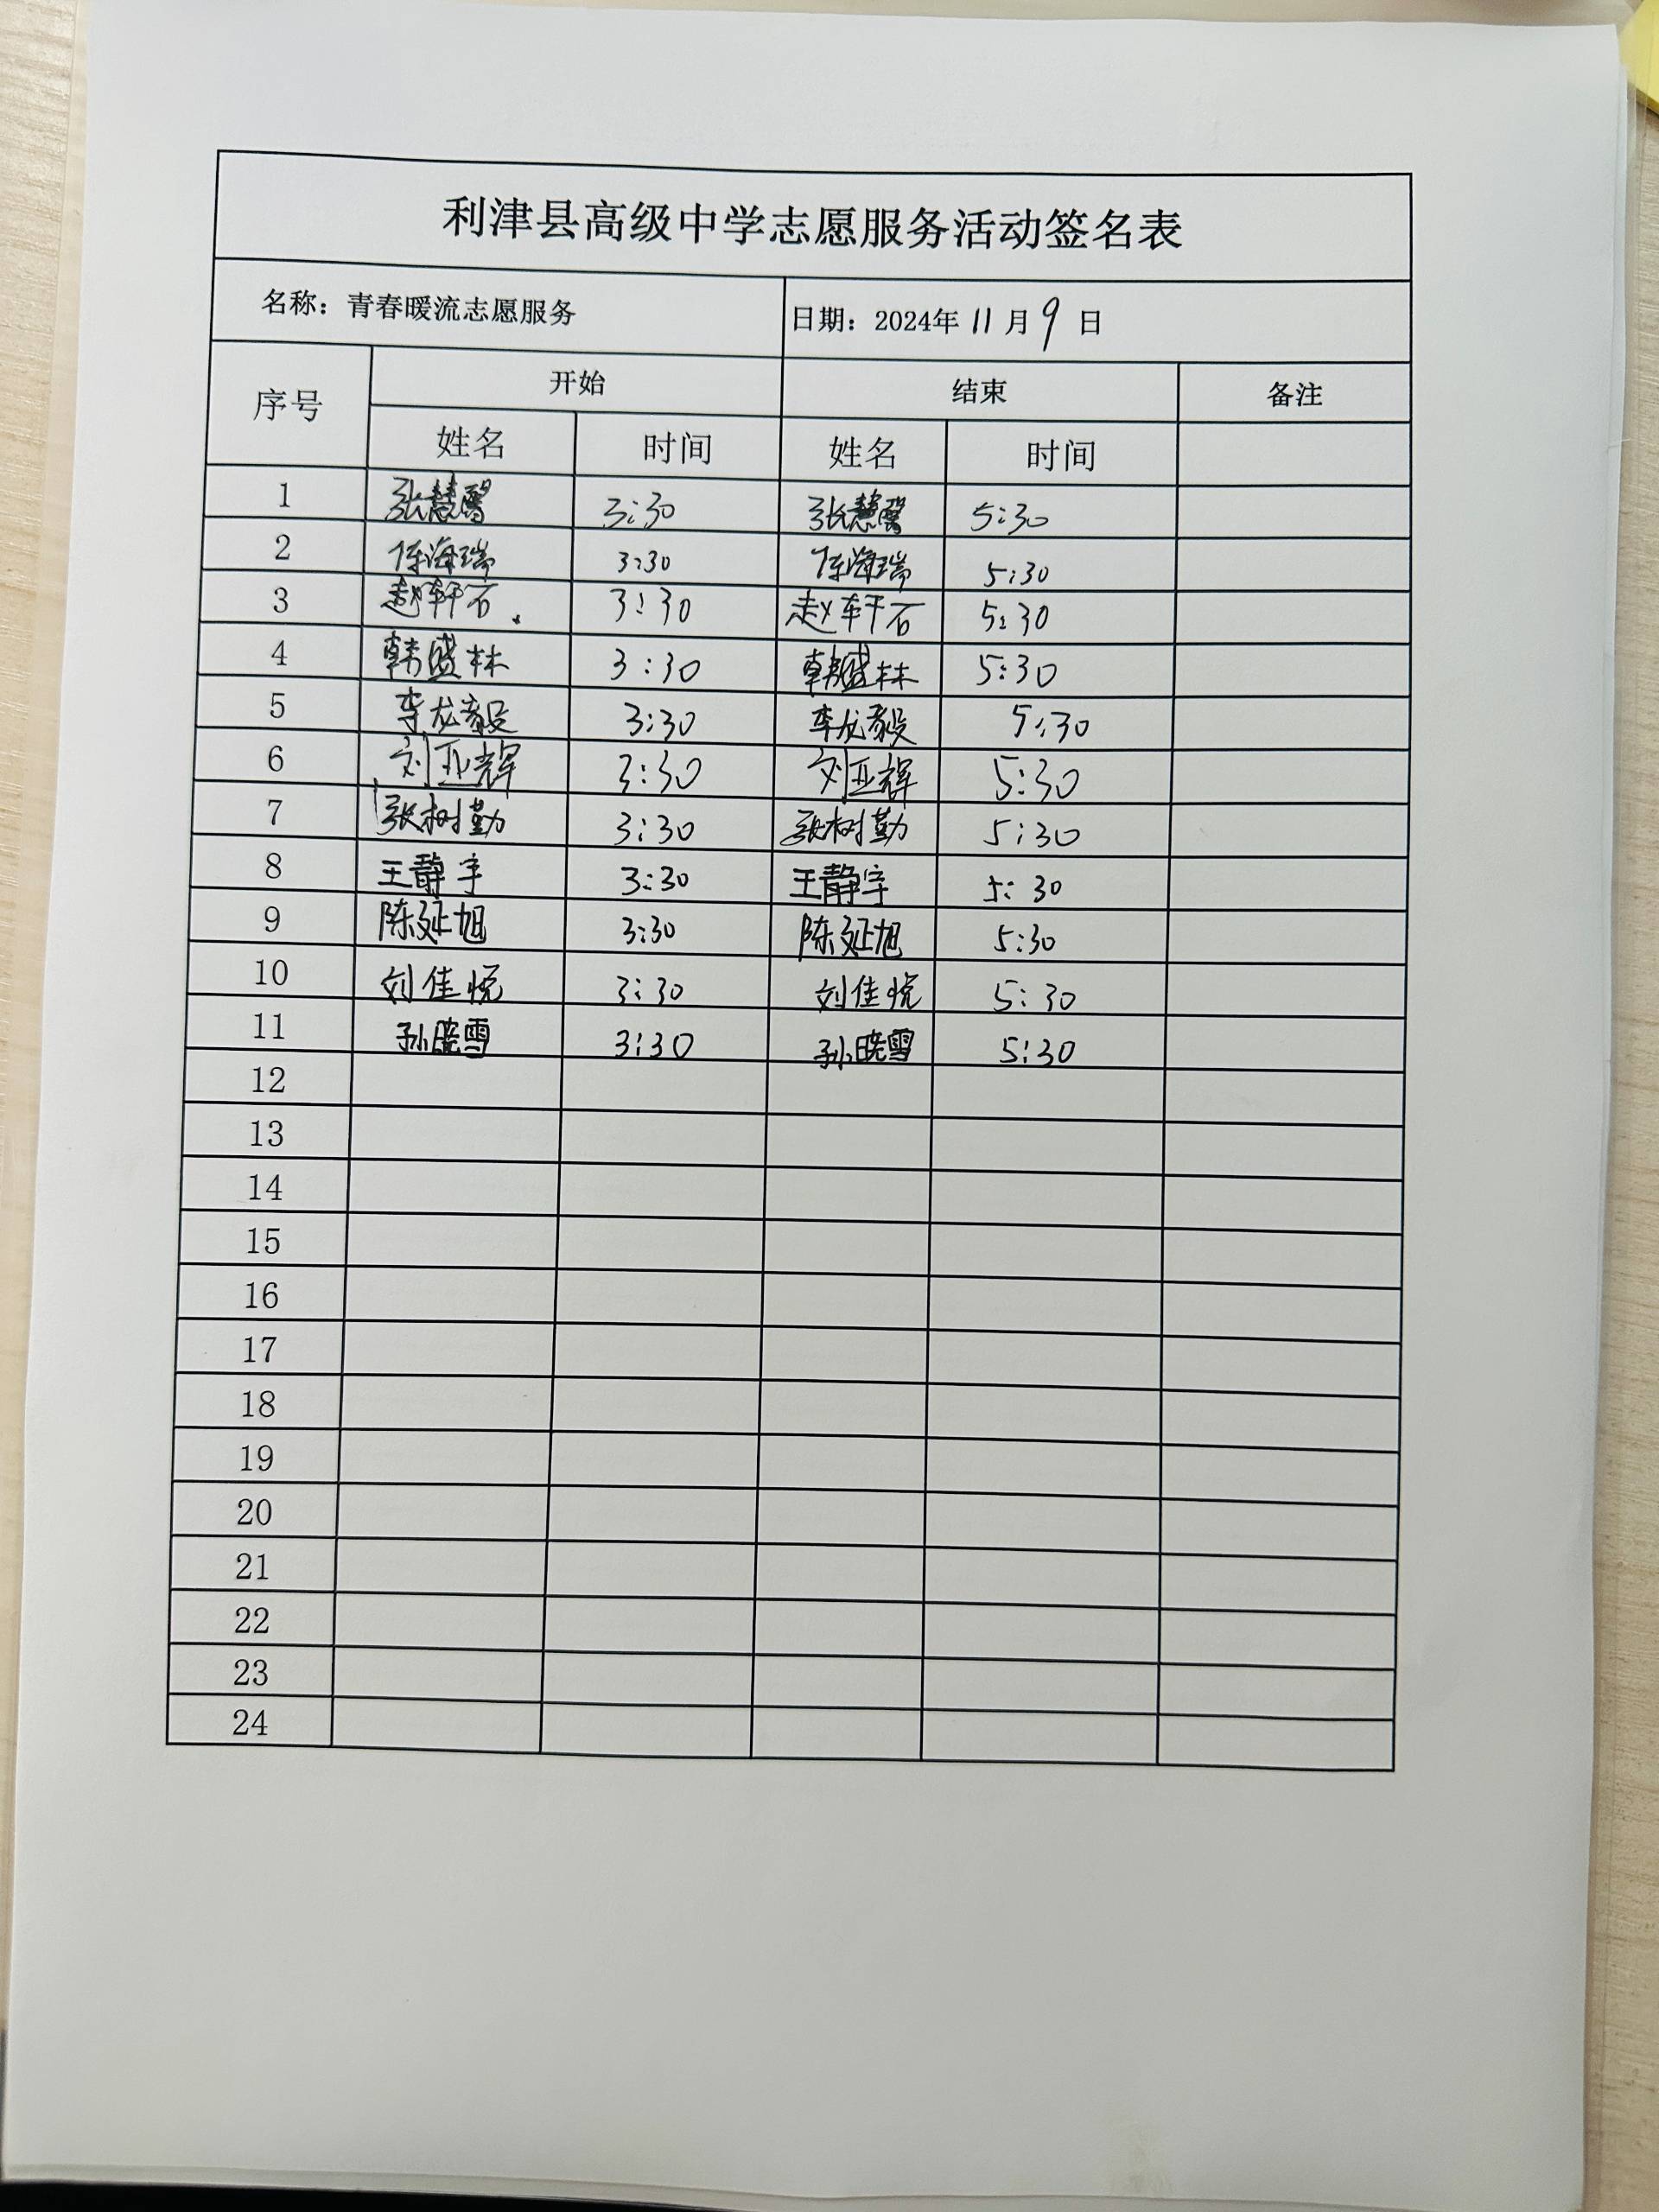 利津县高级中学志愿服务活动签名表
名称：青春暖流志愿服务 日期：2024年 11 月 9 日
序号 开始 结束 备注
姓名 时间 姓名 时间
1 张慧馨 3:30 张慧馨 5:30
2 陈海瑞 3:30 陈海瑞 5:30
3 赵轩石 3:30 赵轩石 5:30
4 韩盛林 3:30 韩盛林 5:30
5 李龙毅 3:30 李龙毅 5:30
6 刘亚辉 3:30 刘亚辉 5:30
7 张树勤 3:30 张树勤 5:30
8 王静宇 3:30 王静宇 5:30
9 陈延旭 3:30 陈延旭 5:30
10 刘佳悦 3:30 刘佳悦 5:30
11 孙晓雪 3:30 孙晓雪 5:30
12
13
14
15
16
17
18
19
20
21
22
23
24